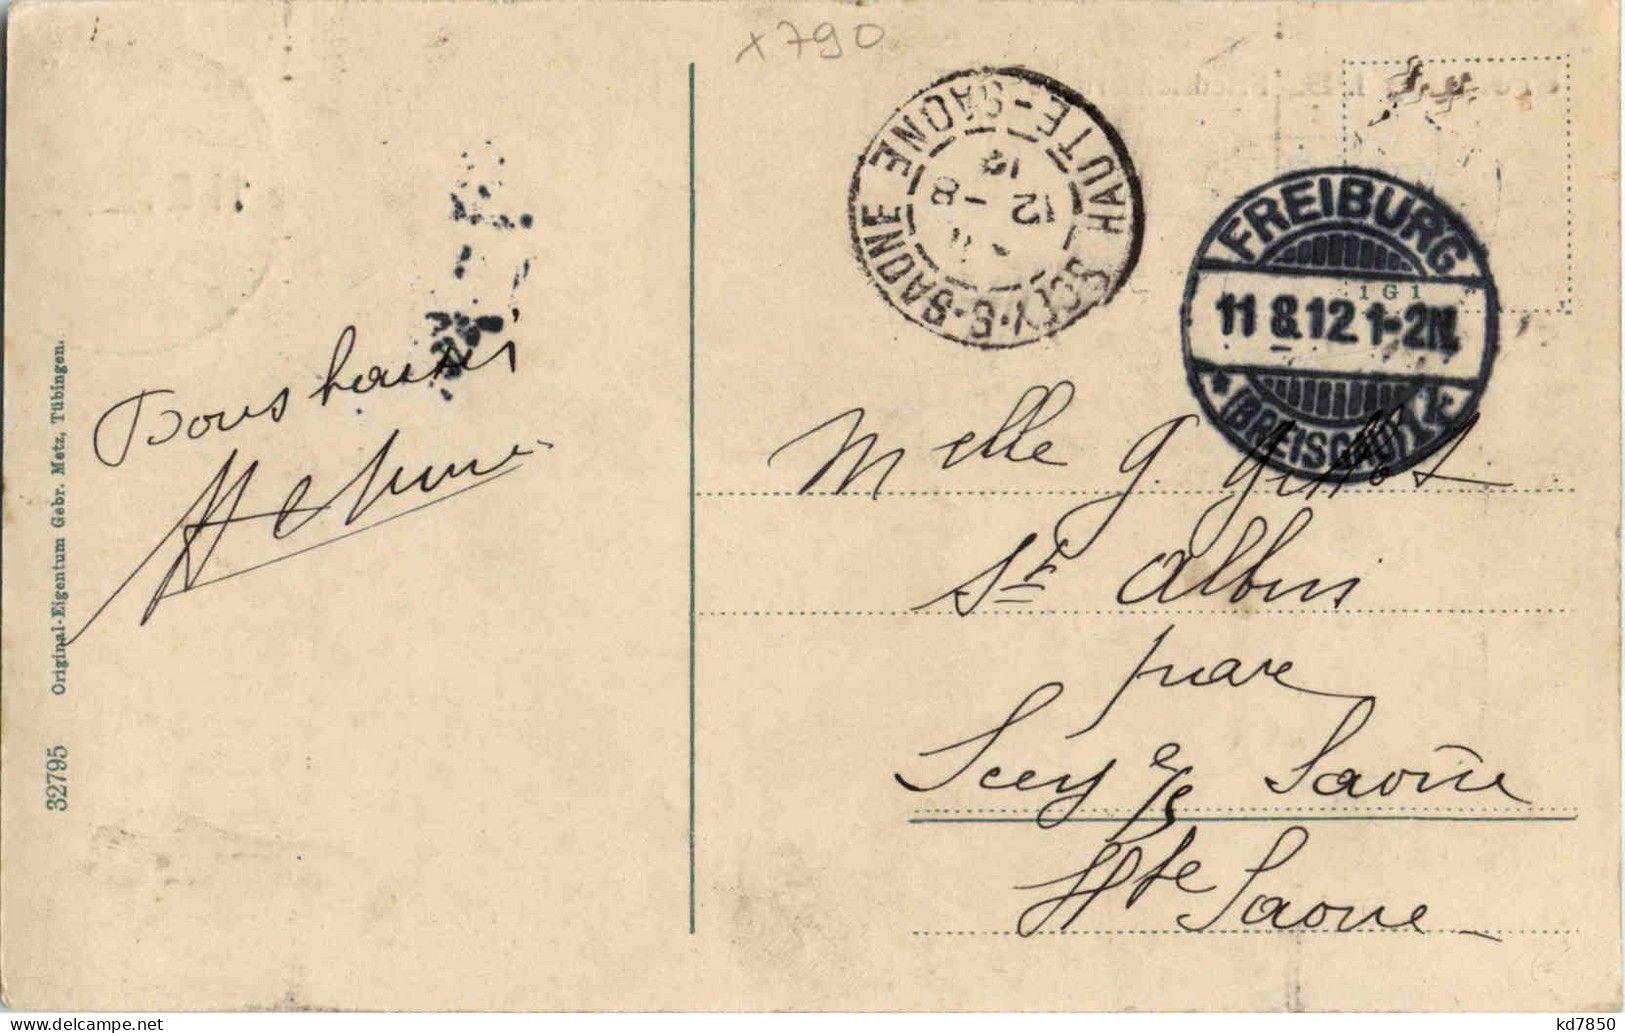 x790
Bons baisers
32795 Original-Eigentum Gebr. Metz, Tübingen.
HAUTE-SAONE
SCEY-S-SAONE-SAONE
12 - 8
12
FREIBURG
1 G 1
11 8.12 1-2N.
* (BREISGAU) 1k
Melle G. Gillot
St Albin
par
Scey s/ Saône
Hte Saone
kd7850